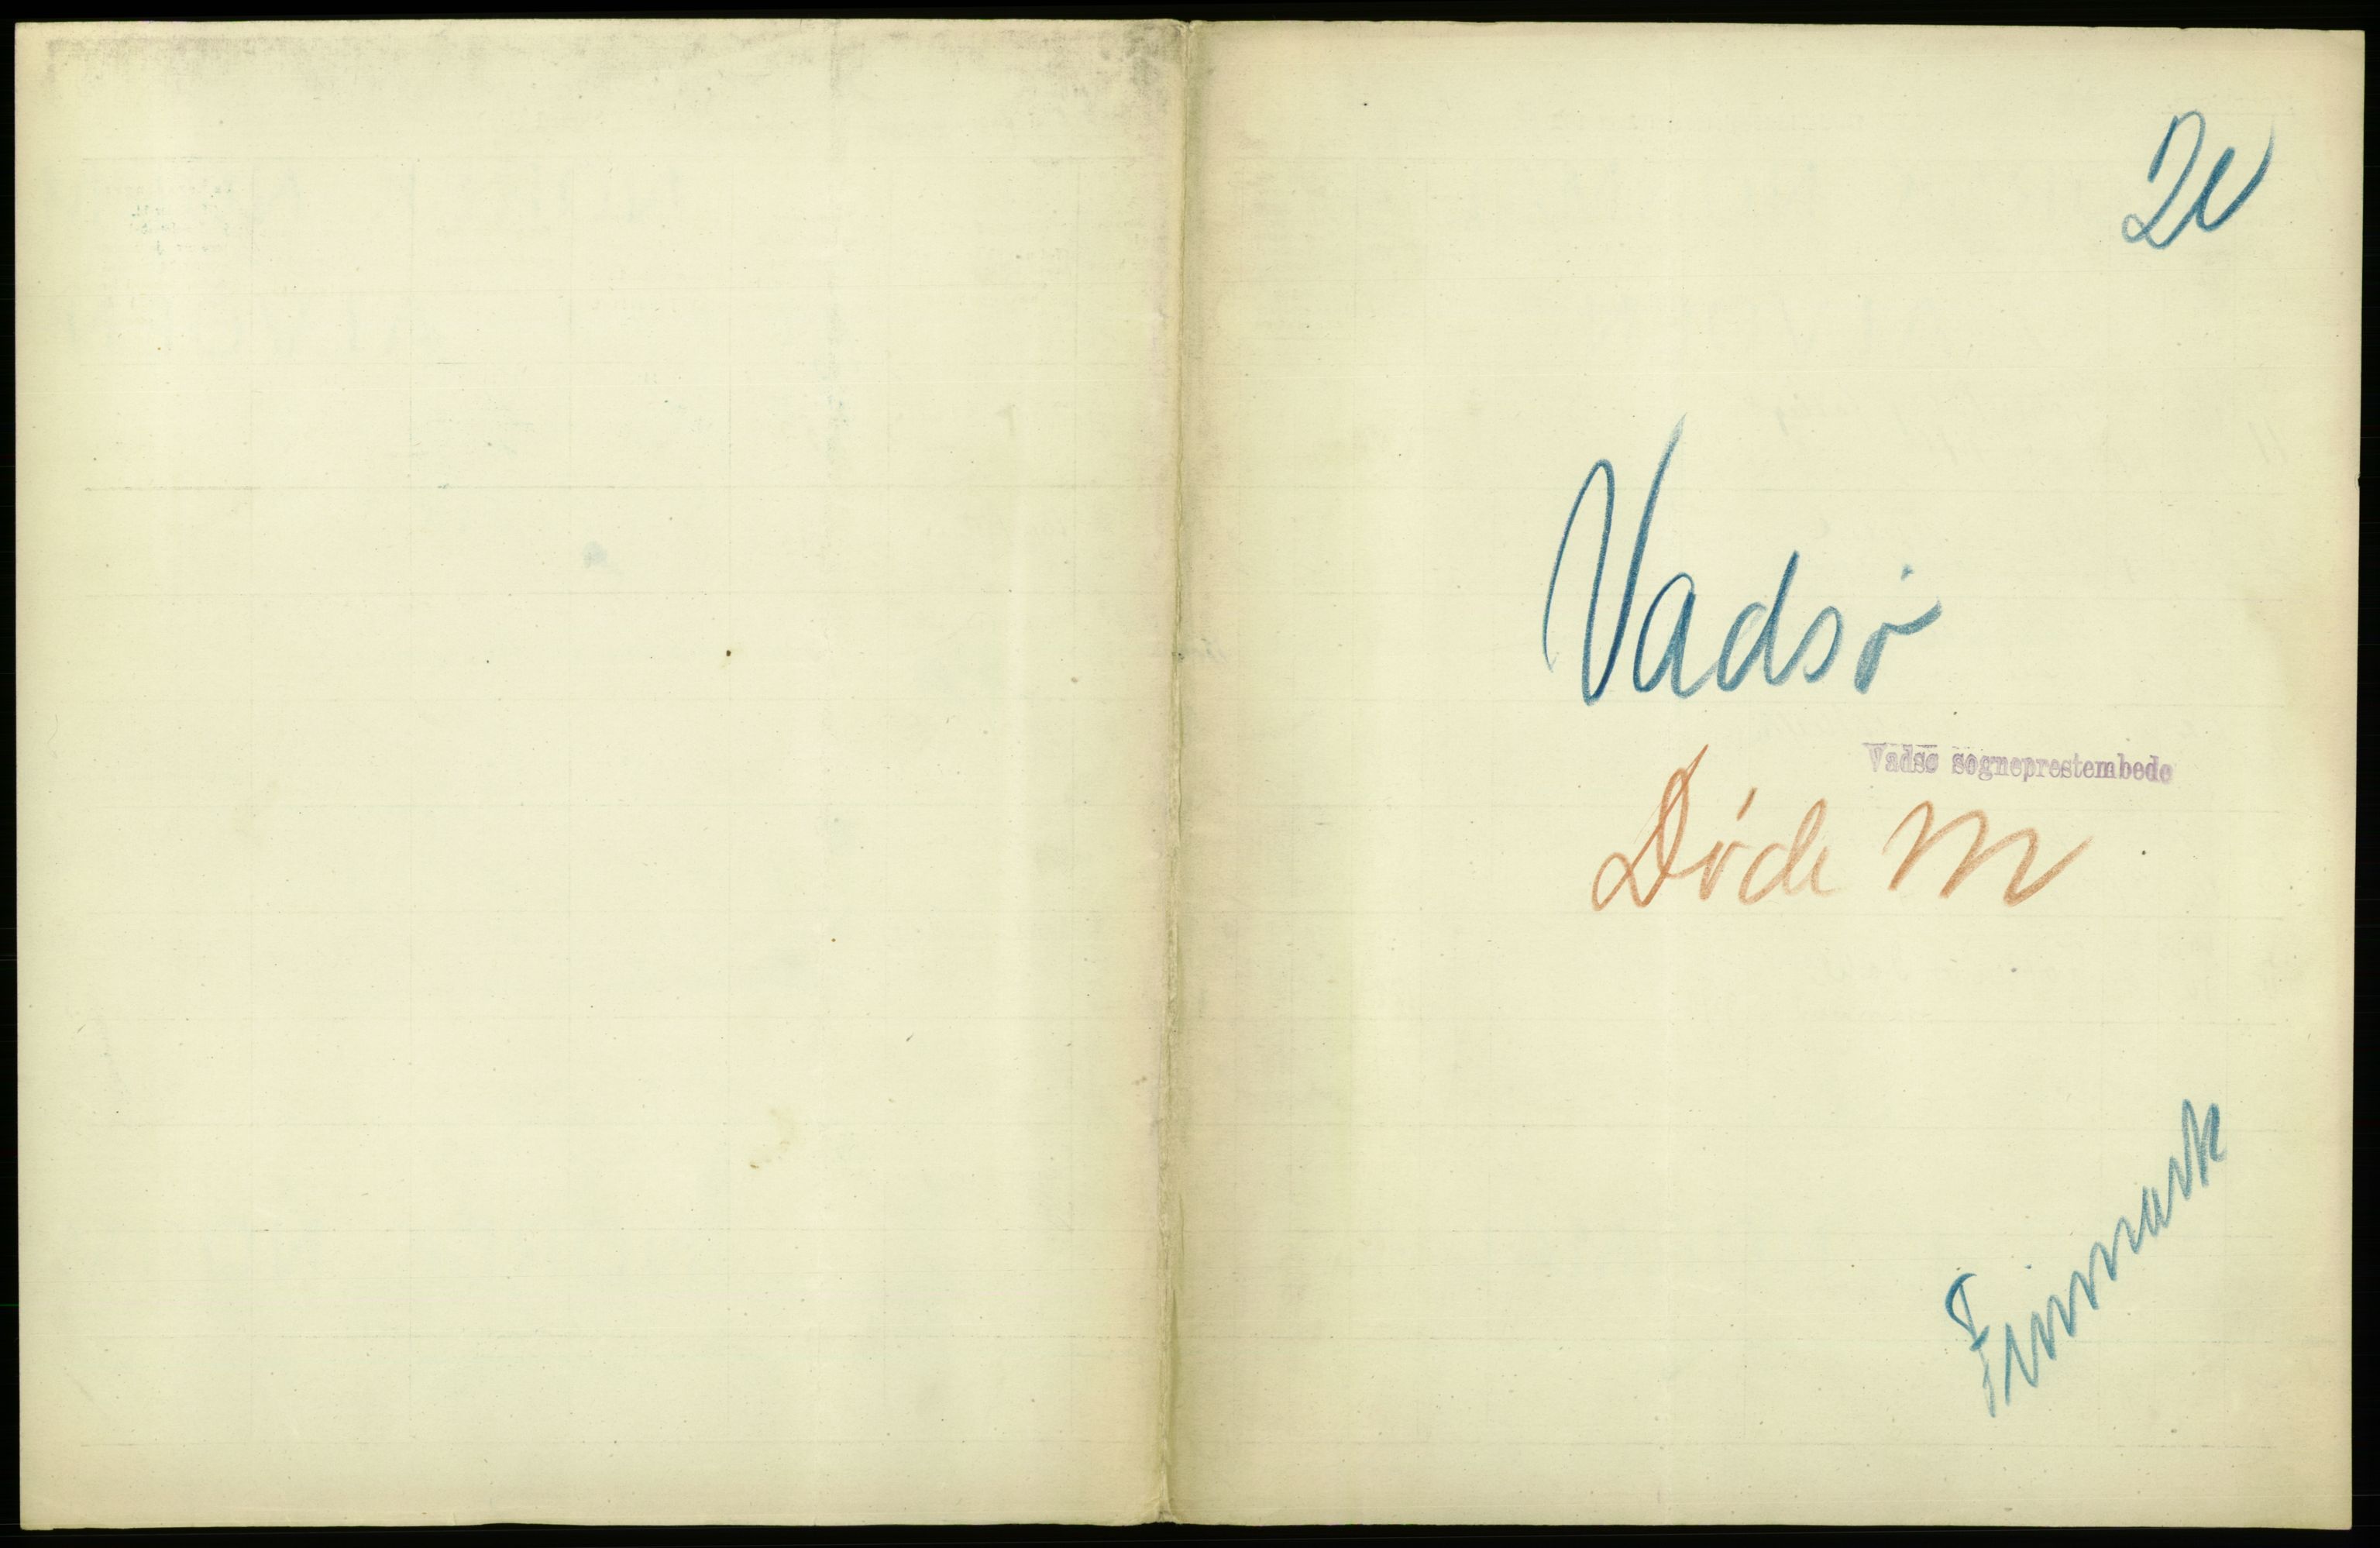 2v
Vadsö
Vadsø sogneprestembede
Døde M
Finnmark